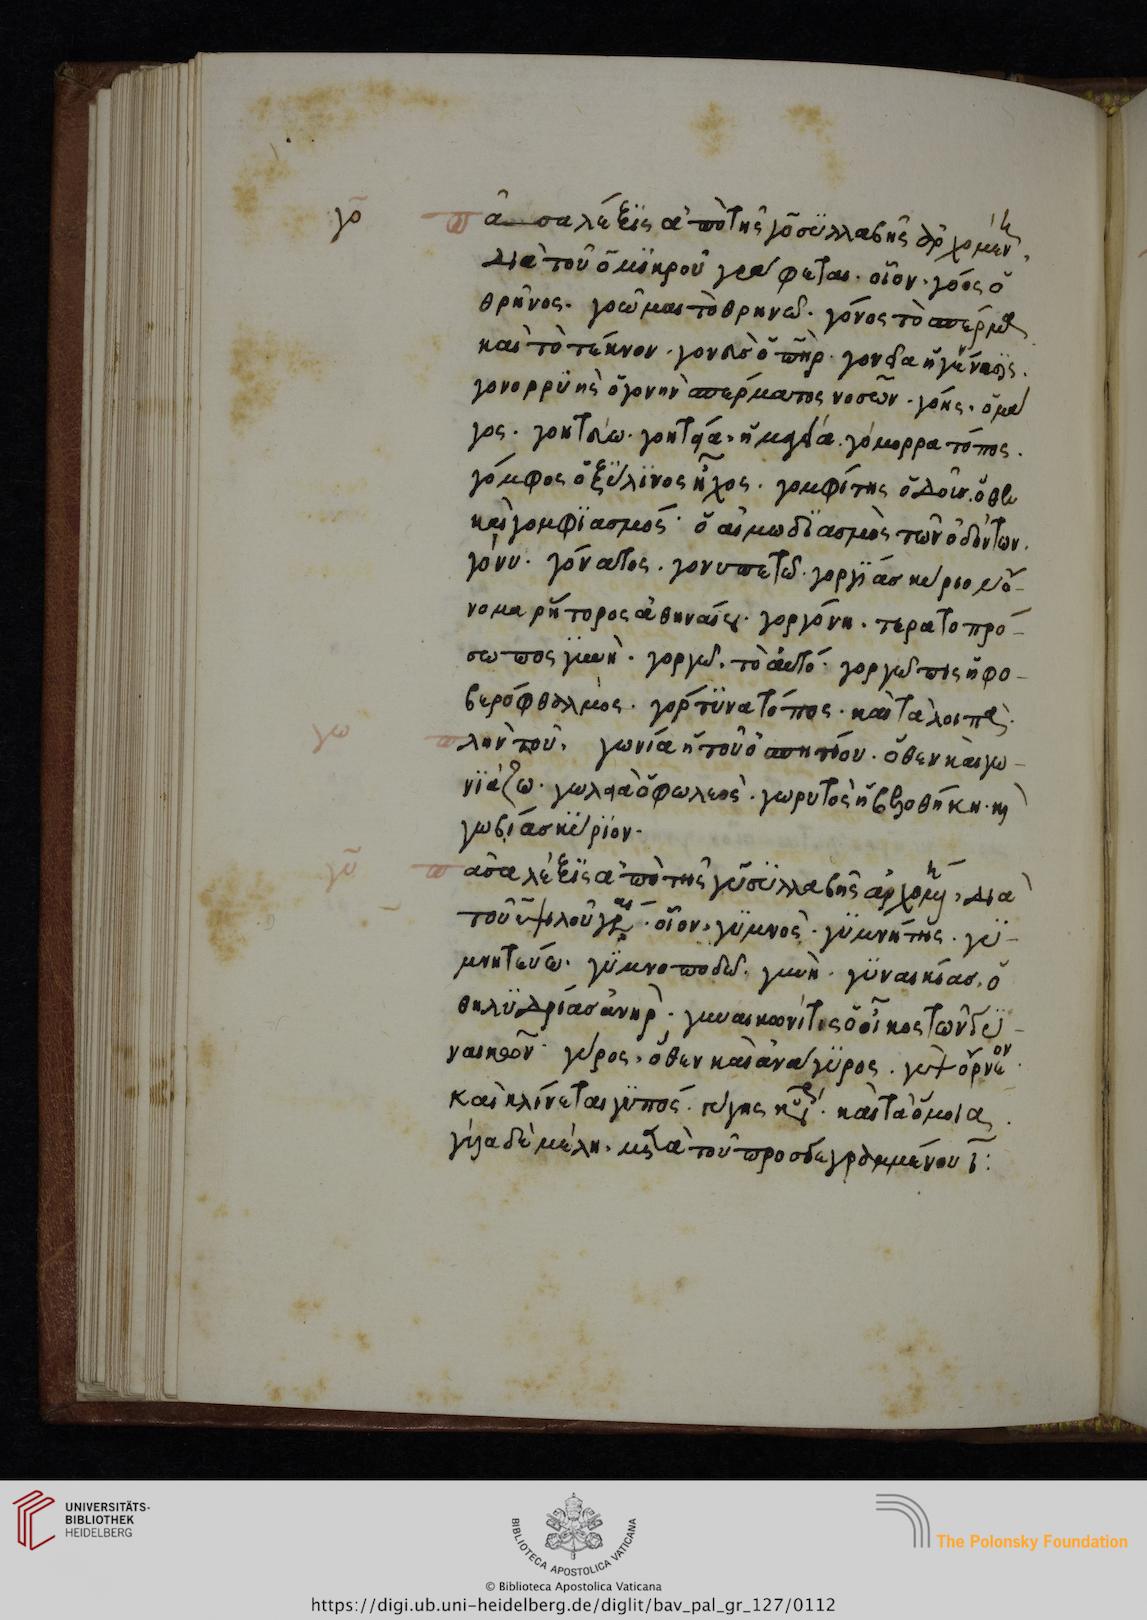 γο
πᾶσα λέξις ἀπὸ τῆς γο συλλαβῆς ἀρχομένη,
διὰ τοῦ ὀμικροῦ γράφεται. οἷον. γόος ὁ
θρῆνος. γοῶμαι τὸ θρηνῶ. γόνος τὸ σπέρμα
καὶ τὸ τέκνον. ὁ πὴρ. ἡ γέννησις.
γονορρυὴς ὁ γονὴν σπέρματος νοσῶν. γόης. ὁ μά
γος. γοητεύω. γοητεία. ἡ μαγεία. γόμορρα τόπος.
γόμφος ὁ ξύλινος ἧλος. γομφίτης ὁ ὀδοὺς. ὅθεν
καὶ γομφιασμός. ὁ αἱμωδιασμὸς τῶν ὀδόντων.
γόνυ. γόνατος. γονυπετῶ. γοργίας κύριον ὄ-
νομα ῥήτορος ἀθηναίου. γοργόνη. τερατοπρό-
σωπος γυνὴ. γοργὼ. τὸ αὐτό. γοργῶπις ἡ φο-
βερόφθαλμος. γόρτυνα τόπος. καὶ τὰ λοιπὰ.
γω
πλὴν τοῦ, γωνία ἡ τοῦ ὀσπητίου. ὅθεν καὶ γω-
νιάζω. γωλεὰ ὁ φωλεὸς. γωρυτὸς ἡ βελοθήκη. καὶ
γωβρίας κύριον.
γυ
πᾶσα λέξις ἀπὸ τῆς γυ συλλαβῆς ἀρχομένη, διὰ
τοῦ ὑψιλοῦ γράφεται. οἷον, γυμνὸς. γυμνήτης. γυ-
μνητεύω. γυμνοποδῶ. γυνὴ. γυναικίας. ὁ
θηλυδρίας ἀνὴρ. γυναικωνῖτις ὁ οἶκος τῶν γυ-
ναικῶν. γύρος, ὅθεν καὶ ἀνάγυρος. γὺψ ὄρνεον.
καὶ κλίνεται γυπός. γύγης καὶ τὰ ὅμοια.
γυῖα δὲ μέλη. μετὰ τοῦ προσδεγραμμένου ι:
UNIVERSITÄTS-
BIBLIOTHEK
HEIDELBERG
BIBLIOTECA APOSTOLICA VATICANA
The Polonsky Foundation
© Biblioteca Apostolica Vaticana
https://digi.ub.uni-heidelberg.de/diglit/bav_pal_gr_127/0112